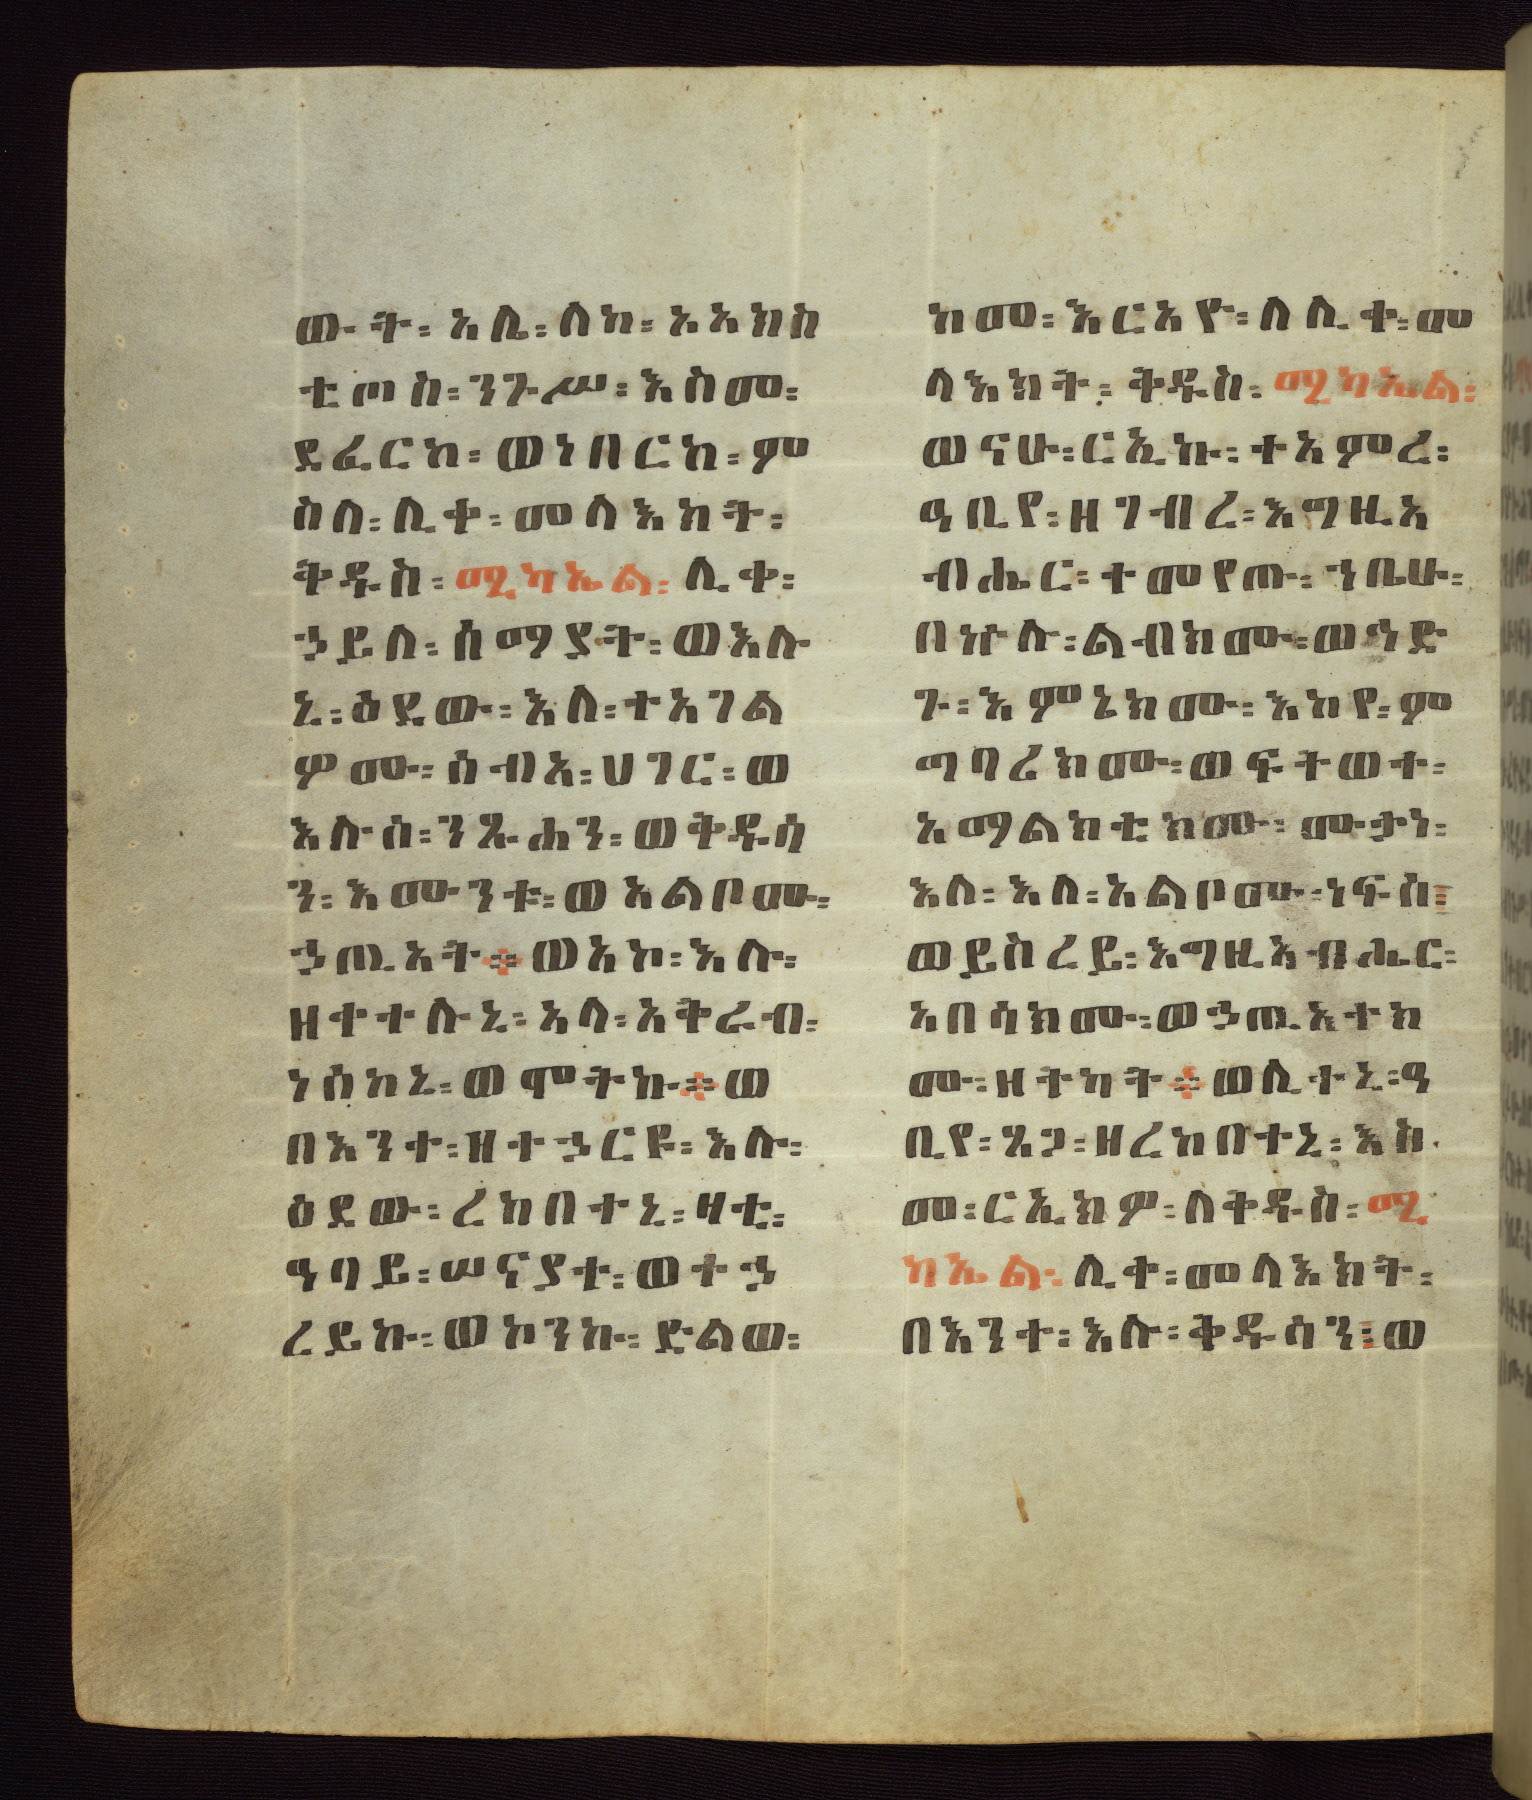 ውት፡ አሌ፡ ለከ፡ አአክስ
ቲጦስ፡ ንጉሥ፡ እስመ፡
ደፈርከ፡ ወነበርከ፡ ምወ
ስለ፡ ሊቀ፡ መላእክት፡
ቅዱስ፡ ሚካኤል፡ ሊቀ፡
ኃይለ፡ ሰማያት፡ ወእሉ
ኒ፡ ዕደው፡ እለ፡ ተአገል
ምሙ፡ ሰብአ፡ ሀገር፡ ወ
እሉሰ፡ ንጹሐን፡ ወቅዱሳ
ን፡ እሙንቱ፡ ወአልቦሙ፡
ኃጢአት፨ ወአኮ፡ እሉ፡
ዘቀተሉኒ፡ አላ፡ አቅራብ፡
ነሰከኒ፡ ወሞትኩ፨ ወ
በእንተ፡ ዘተኃርዩ፡ እሉ፡
ዕደው፡ ረከበተኒ፡ ዛቲ፡
ዓባይ፡ ሠናያት፡ ወተኃ
ረይኩ፡ ወኮንኩ፡ ድልወ፡
ከመ፡ እርአዮ፡ ለሊቀ፡ መ
ላእክት፡ ቅዱስ፡ ሚካኤል፡
ወናሁ፡ ርኢኩ፡ ተአምረ፡
ዓቢየ፡ ዘገብረ፡ እግዚአ
ብሔር፡ ተመየጡ፡ ኀቤሁ፡
በኵሉ፡ ልብክሙ፡ ወኅድ
ጉ፡ እምኔክሙ፡ እከየ፡ ም
ግባሪክሙ፡ ወፍትወተ፡
አማልክቲክሙ፡ ሙታነ፡
እለ፡ እለ፡ አልቦሙ፡ ነፍስ፡
ወይስረይ፡ እግዚአብሔር፡
አበሳክሙ፡ ወኃጢአተክ
ሙ፡ ዘትካት፨ ወሊተኒ፡ ዓ
ቢየ፡ ጸጋ፡ ዘረከበተኒ፡ እስ
መ፡ ርኢክዎ፡ ለቅዱስ፡ ሚ
ካኤል፡ ሊቀ፡ መላእክት፡
በእንተ፡ እሉ፡ ቅዱሳን፡ ወ